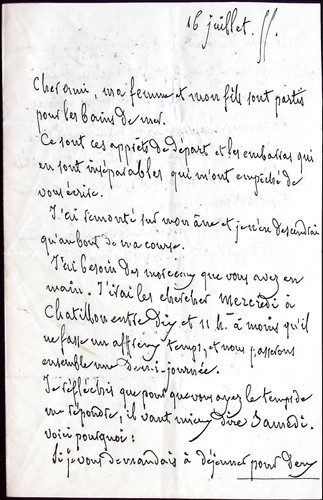 16 juillet. 55.
Cher ami, ma femme et mon fils sont partis
pour les bains de mer.
Ce sont ces apprêts de départ et les embarras qui
en sont inséparables qui m'ont empêché de
vous écrire.
J'ai remonté sur mon âne et je n'en descendrai
qu'au bout de ma course.
J'ai besoin des morceaux que vous avez en
main. J'irai les chercher mercredi à
Chatillon entre dix et 11 h. à moins qu'il
ne fasse un affreux temps, et nous passerons
ensemble une demi-journée.
Je réfléchis que pour que vous ayez le temps de
me répondre, il vaut mieux dire Samedi.
voici pourquoi :
Si je vous demandais à déjeuner pour deux